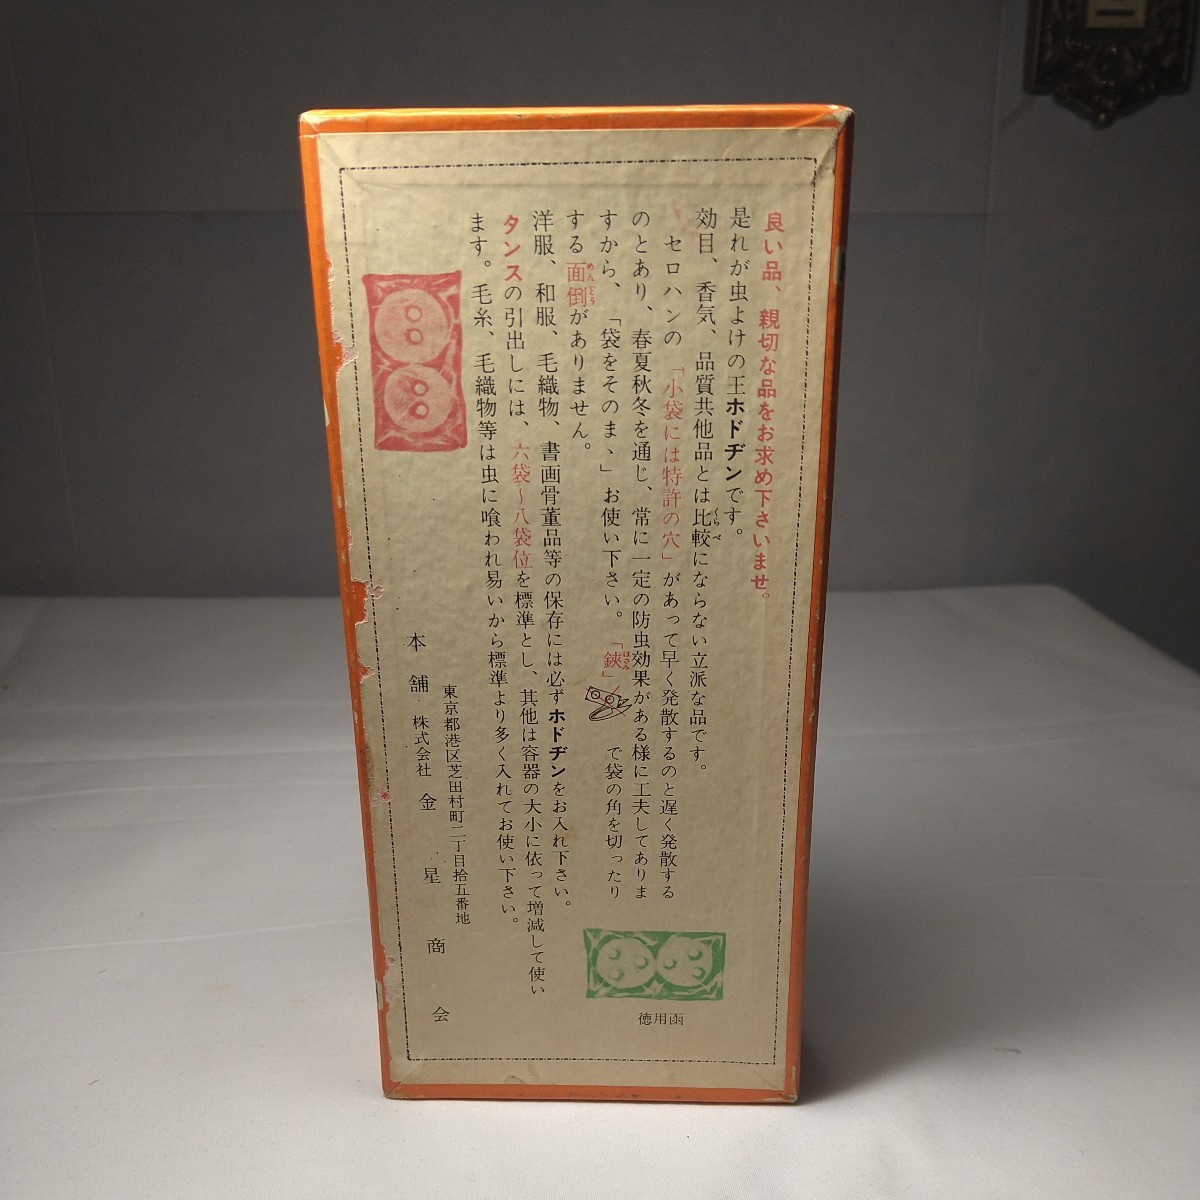 良い品、親切な品をお求め下さいませ。
是れが虫よけの王ホドヂンです。
効目、香気、品質共他品とは比較にならない立派な品です。
くらべ
セロハンの「小袋には特許の穴」があって早く発散するのと遅く発散する
のとあり、春夏秋冬を通じ、常に一定の防虫効果がある様に工夫してありま
すから、「袋をそのまゝ」お使い下さい。「鋏」で袋の角を切ったり
はさみ
する面倒がありません。
めんどう
洋服、和服、毛織物、書画骨董品等の保存には必ずホドヂンをお入れ下さい。
タンスの引出しには、六袋〜八袋位を標準とし、其他は容器の大小に依って増減して使い
ます。毛糸、毛織物等は虫に喰われ易いから標準より多く入れてお使い下さい。
東京都港区芝田村町二丁目拾五番地
本舗 株式会社 金星商会
徳用函